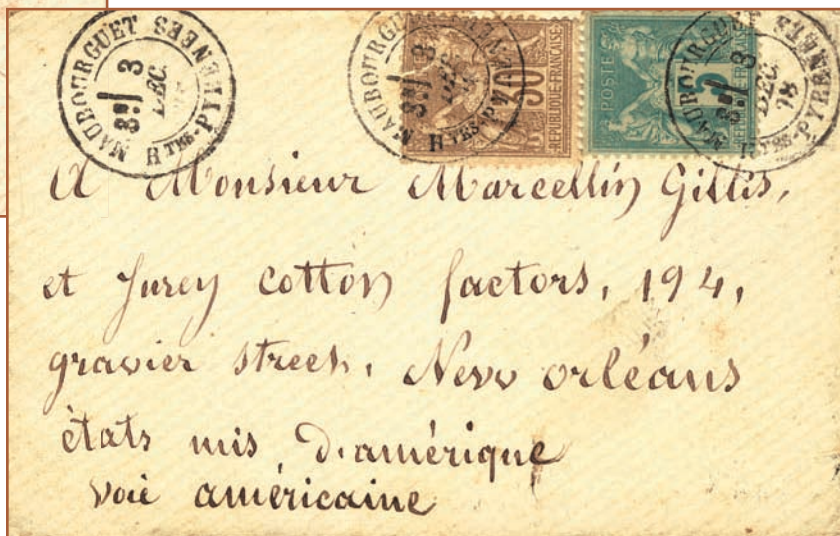 MAUBOURGUET
3E/ 3
DEC.
HTES-PYRENEES
MAUBOURGUET
3E/ 3
HTES-PYRENEES
30
REPUBLIQUE FRANCAISE
MAUBOURGUET
3E/ 3
DEC.
78
HTES-PYRENEES
POSTES
5
A Monsieur Marcellin Gillis,
et Jurey cotton factors, 194,
gravier street, New orléans
états unis d.amérique
voie américaine